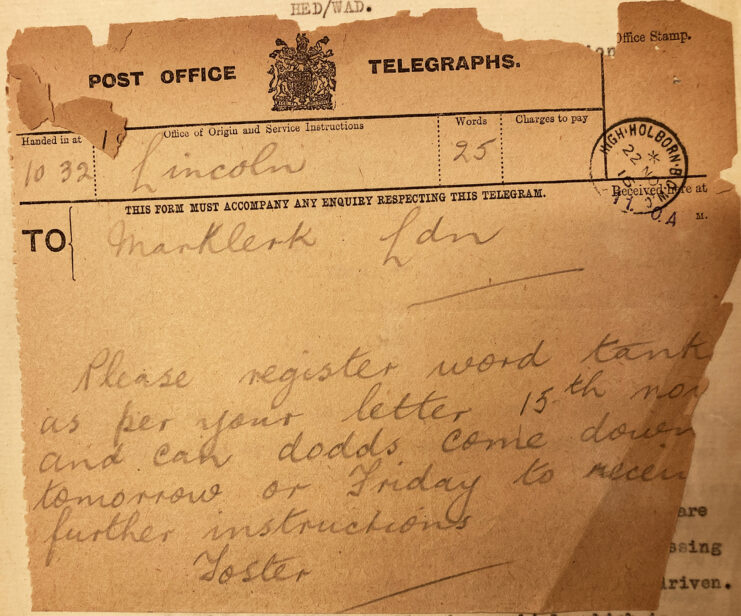 HED/WAD.
Office Stamp.
POST OFFICE TELEGRAPHS.
Handed in at
Office of Origin and Service Instructions
Words
Charges to pay
10 32
Lincoln
25
HIGH·HOLBORN·B.O.W.C.
22 NO
15
Received here at
THIS FORM MUST ACCOMPANY ANY ENQUIRY RESPECTING THIS TELEGRAM.
M.
TO
Marklerk Ldn
Please register word tank
as per your letter 15th nov
and can dodds come down
tomorrow or Friday to receiv
further instructions
Foster
are
ssing
driven.